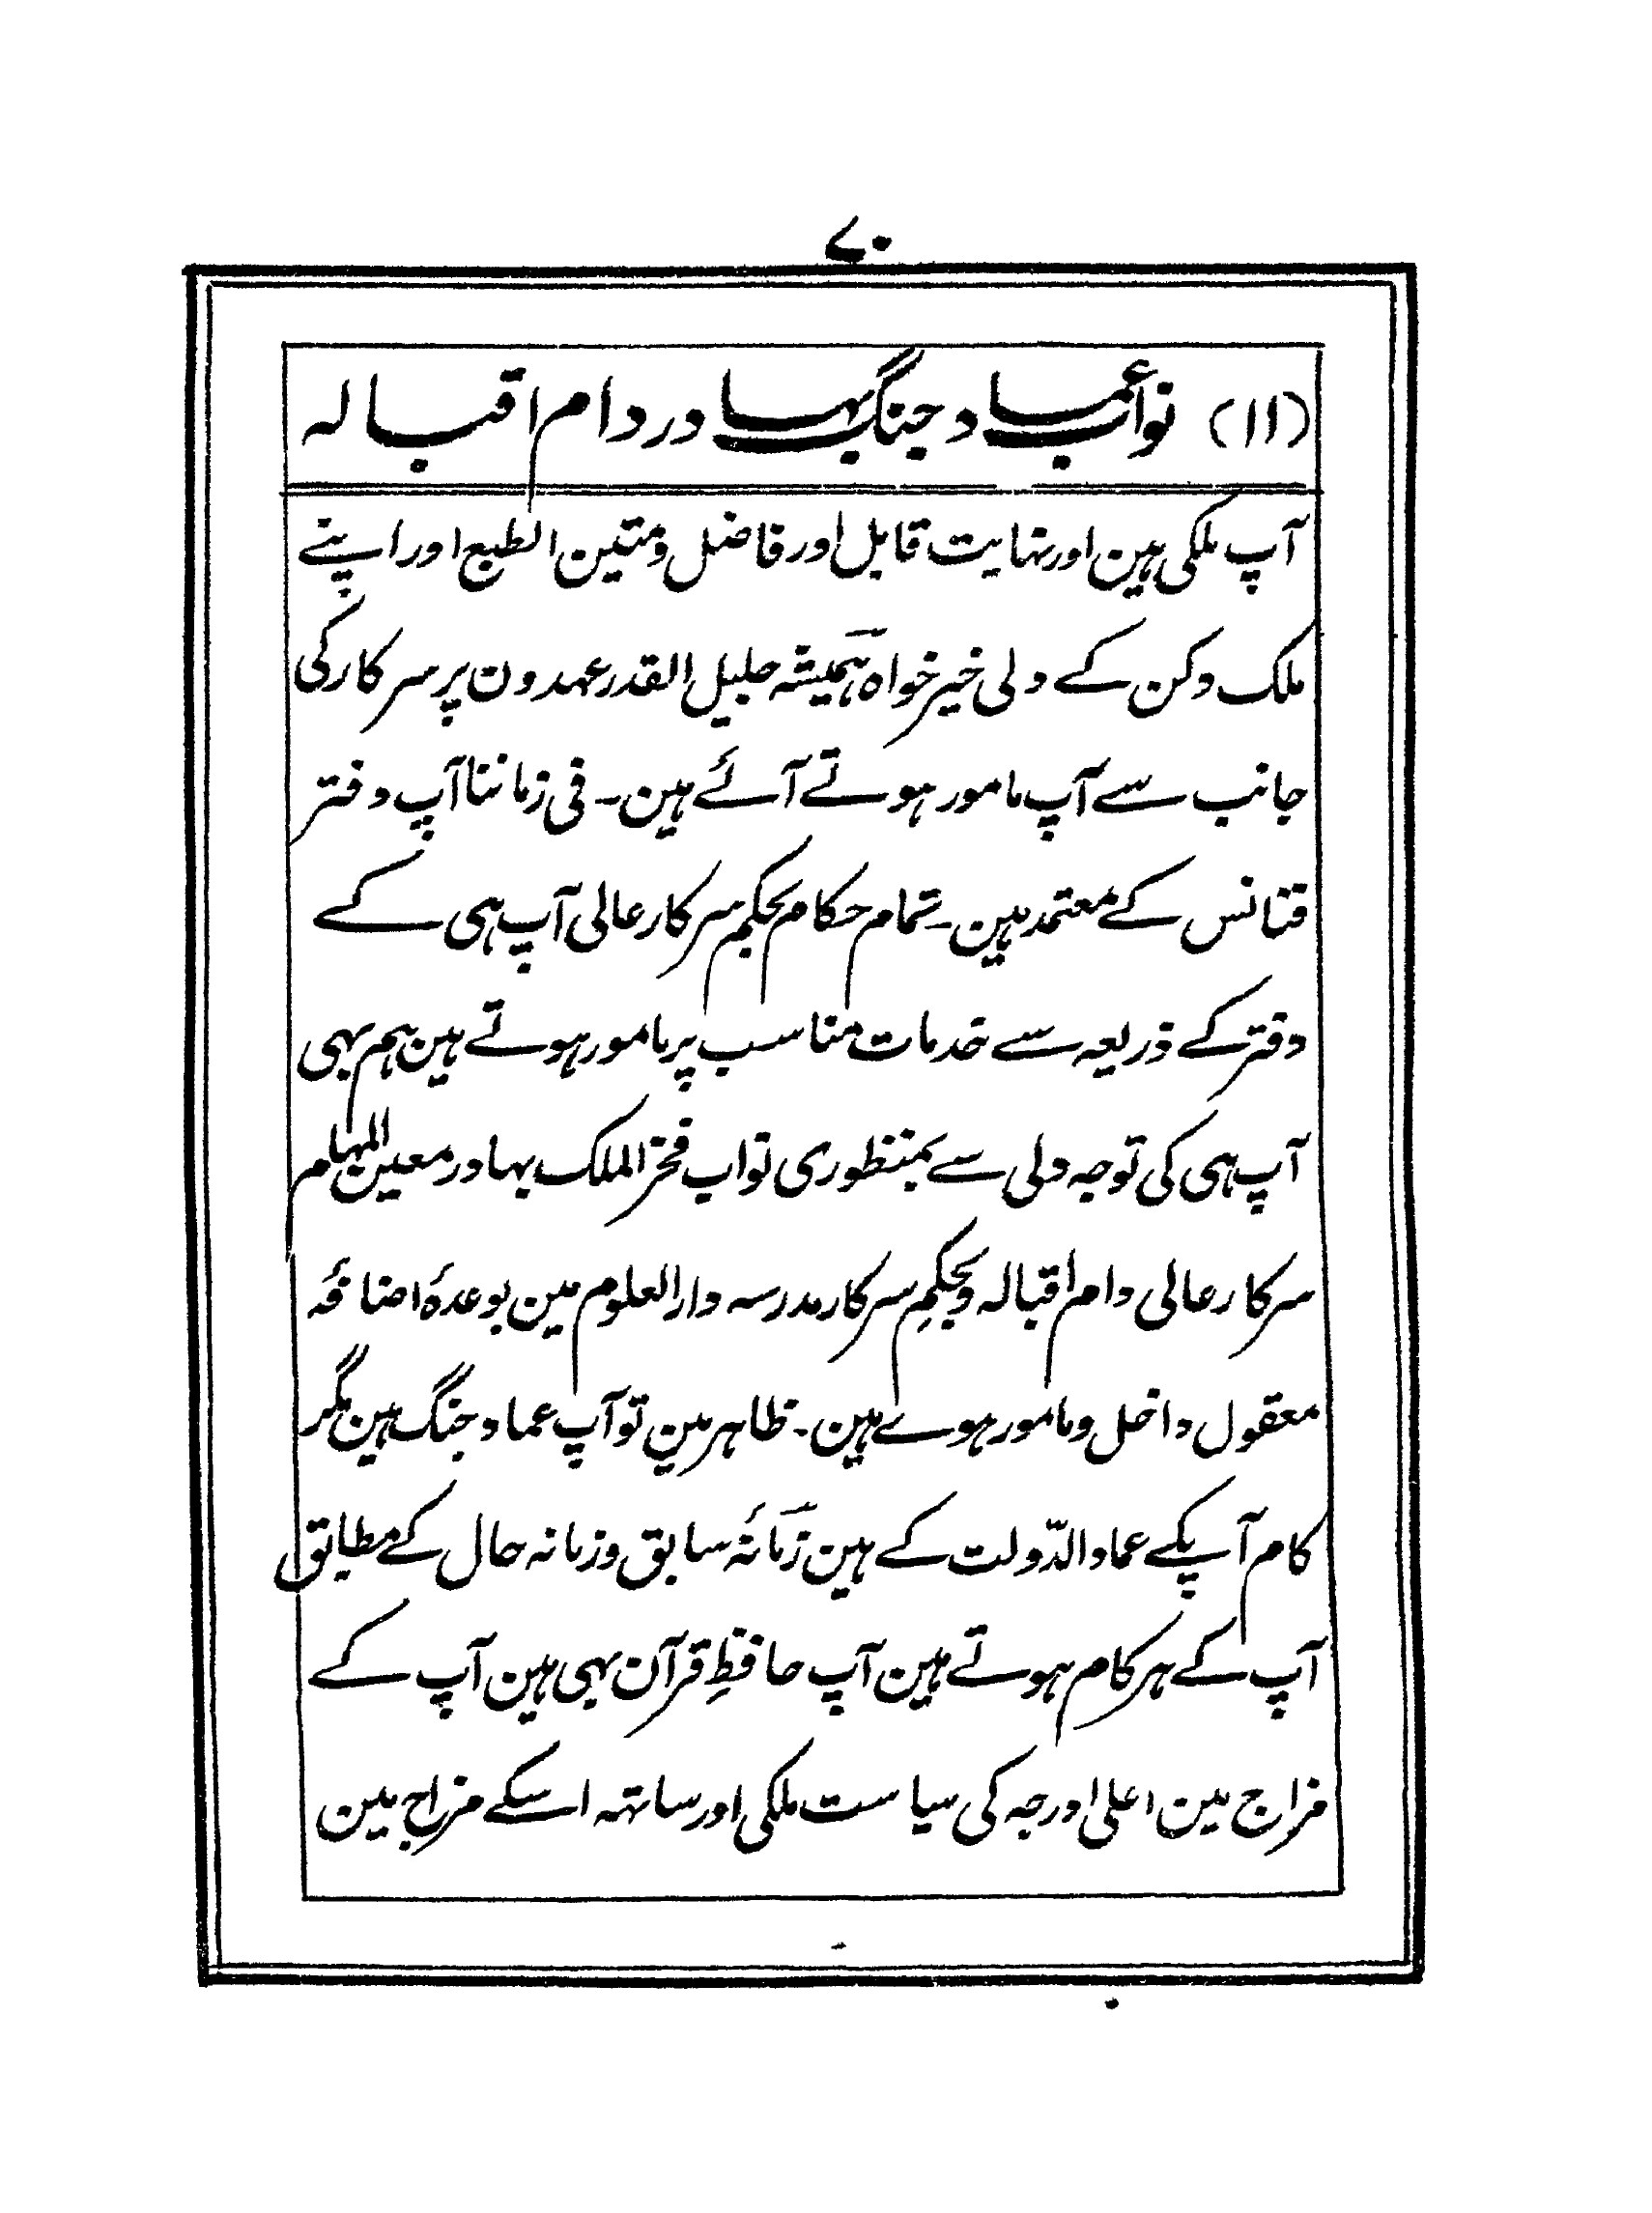 ۷۰
(۱۱) نواب عماد جنگ بہادر دام اقبالہ
آپ ملکی ہین اور نہایت قابل اور فاضل و متین الطبع اور اپنے
ملک دکن کے دلی خیر خواہ ہمیشہ جلیل القدر عہدون پر سرکار کی
جانب سے آپ مامور ہوتے آئے ہین ۔ فی زماننا آپ دفتر
فنانس کے معتمد ہین ۔ تمام حکام بحکم سرکار عالی آپ ہی کے
دفتر کے ذریعہ سے خدمات مناسب پر مامور ہوتے ہین ہم بہی
آپ ہی کی توجہ دلی سے بمنظوری نواب فخر الملک بہادر معین المہام
سرکار عالی دام اقبالہ و بحکمِ سرکار مدرسہ دار العلوم مین بوعدۂ اضافۂ
معقول داخل و مامور ہوے ہین ۔ ظاہر مین تو آپ عماد جنگ ہین مگر
کام آپکے عماد الدّولت کے ہین زمانۂ سابق و زمانہ حال کے مطابق
آپ کے ہر کام ہوتے ہین آپ حافظِ قرآن بہی ہین آپ کے
مزاج مین اعلی درجہ کی سیاست ملکی اور ساتہہ اسکے مزاج مین